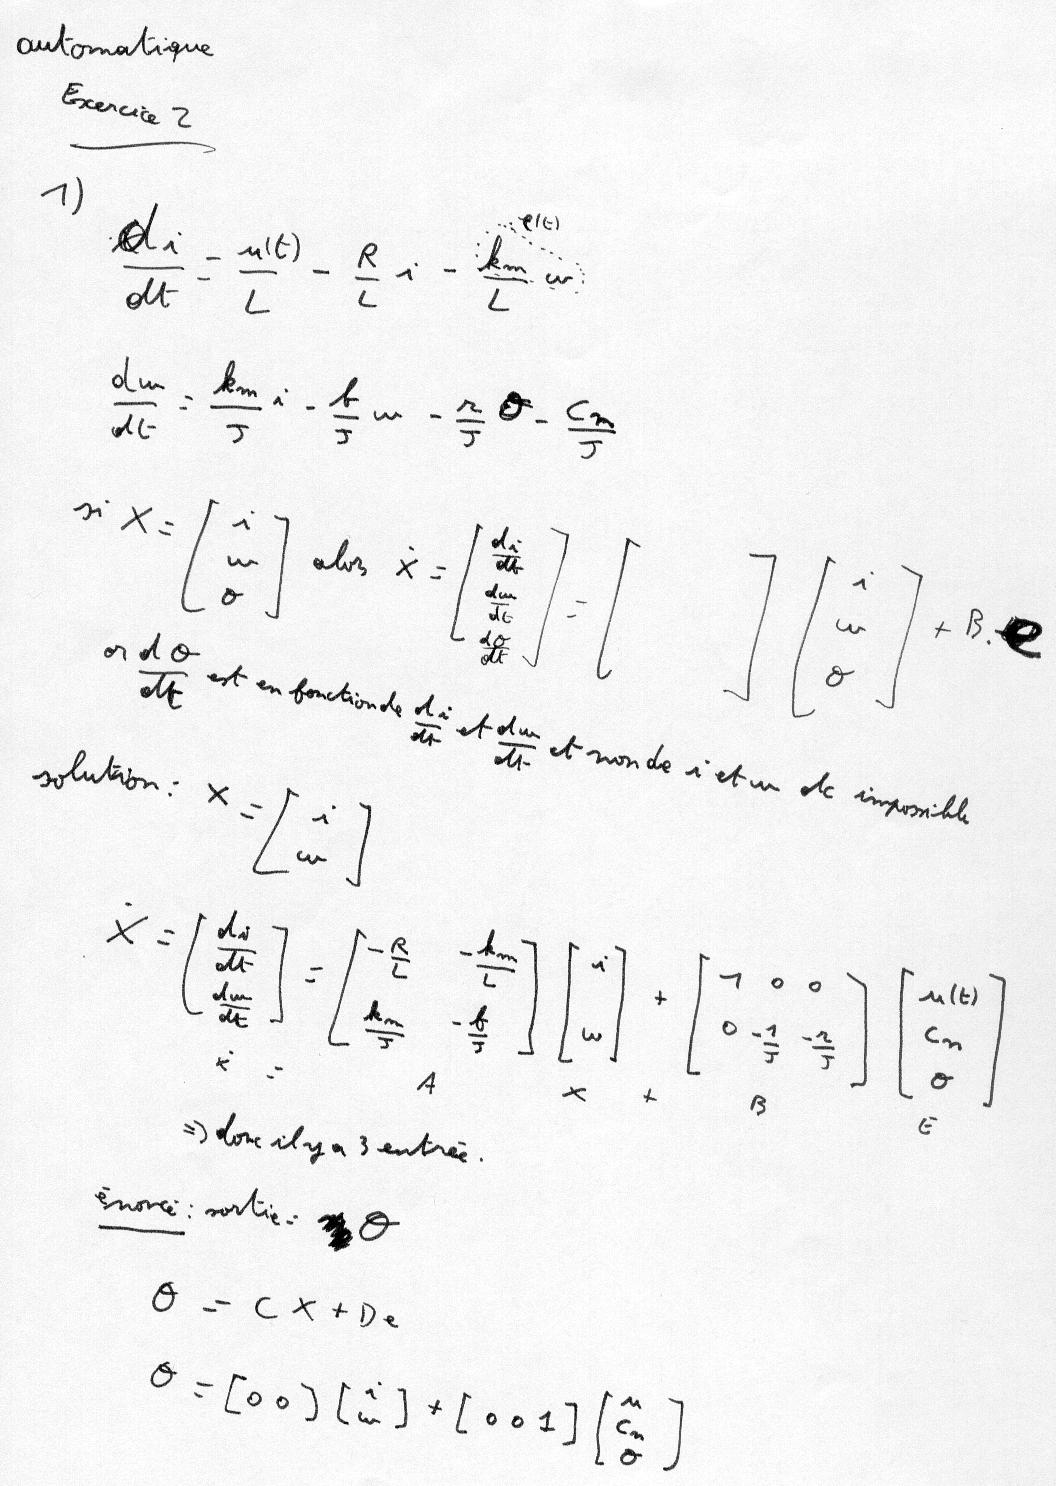 automatique
Exercice 2
1)
e(t)
di/dt = u(t)/L - R/L i - km/L w
dw/dt = km/J i - f/J w - r/J θ - Cr/J
si X = [i w θ] alors Ẋ = [di/dt dw/dt dθ/dt] = [ ] [i w θ] + B.e
or dθ/dt est en fonction de di/dt et dw/dt et non de i et w dc impossible
solution : X = [i w]
Ẋ = [di/dt dw/dt] = [-R/L -km/L km/J -f/J] [i w] + [1 0 0 0 -1/J -r/J] [u(t) Cr θ]
ẋ = A X + B E
=> donc il y a 3 entrée.
énoncé : sortie = θ
θ = C X + D e
θ = [0 0] [i w] + [0 0 1] [u Cr θ]